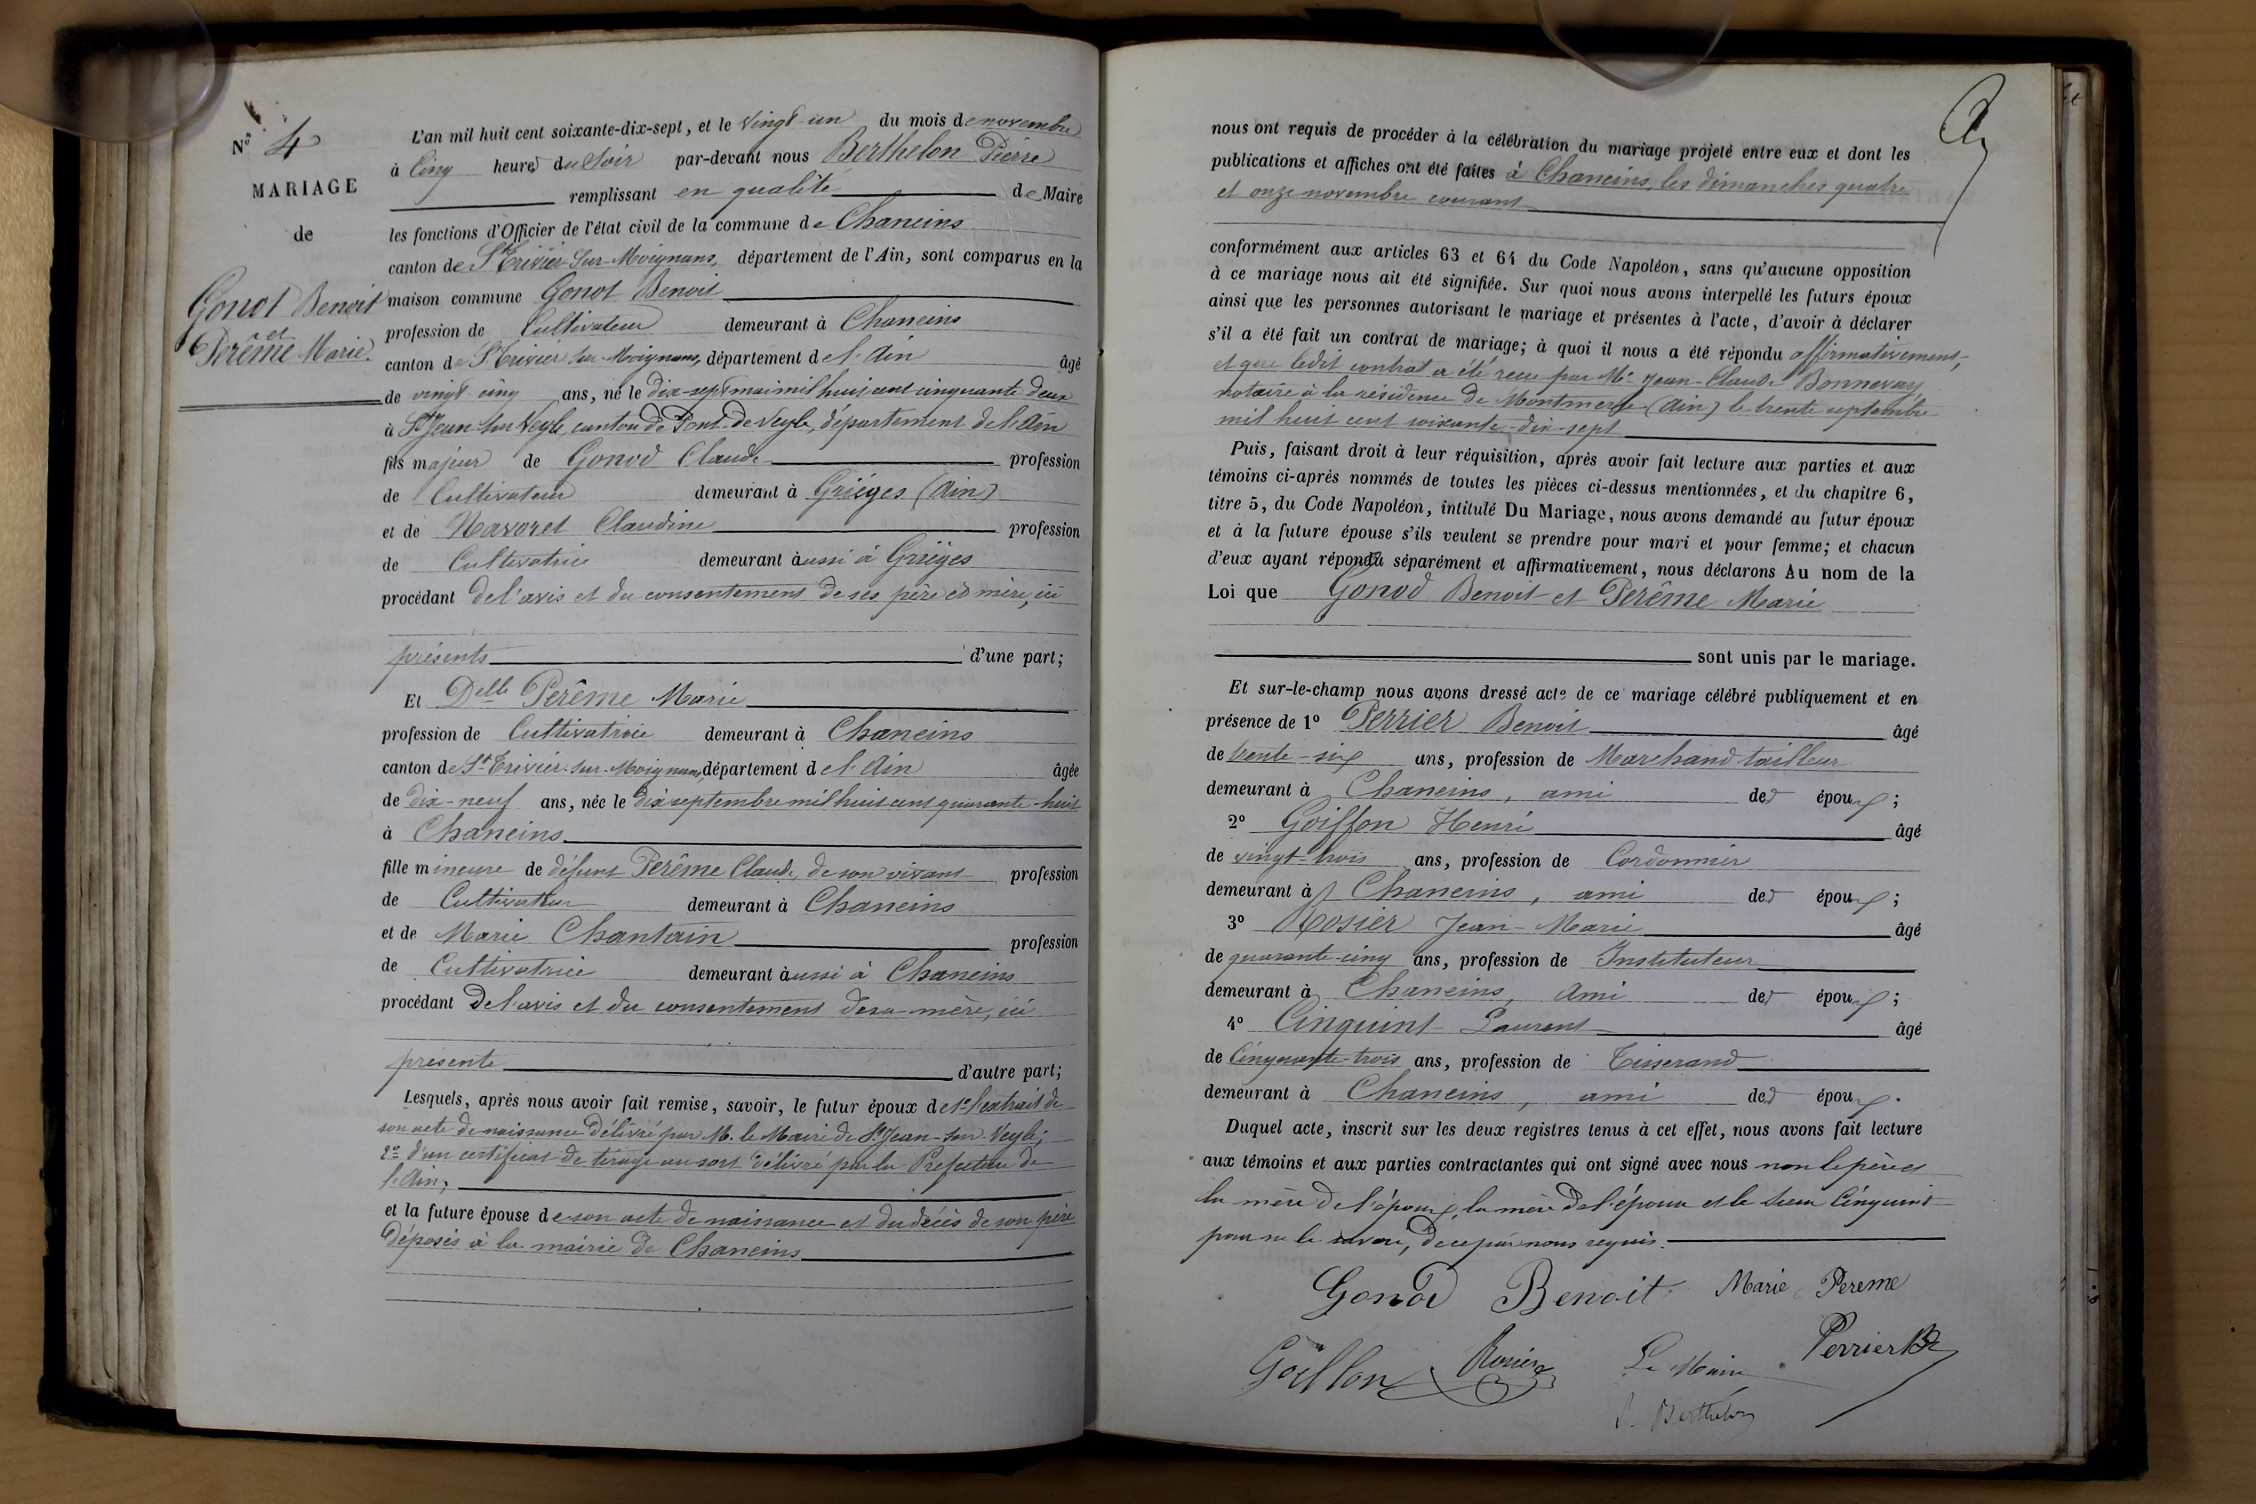 Nº 4
MARIAGE
de
Gonot Benoit
et
Perême Marie.
L'an mil huit cent soixante-dix-sept, et le vingt-un du mois de novembre
à Cinq heures du Soir par-devant nous Berthelon Pierre
remplissant en qualité de Maire
les fonctions d'Officier de l'état civil de la commune de Chaneins
canton de St Trivier-Sur-Moignans, département de l'Ain, sont comparus en la
maison commune Gonot Benoit
profession de Cultivateur demeurant à Chaneins
canton de St Trivier-sur-Moignans, département de l'Ain âgé
de vingt-cinq ans, né le dix-sept mai mil huit cent cinquante deux
à St Jean sur Veyle, canton de Pont-de-Veyle, département de l'Ain
fils majeur de Gonod Claude profession
de Cultivateur demeurant à Grièges (Ain)
et de Navoret Claudine profession
de Cultivatrice demeurant aussi à Grièges
procédant de l'avis et du consentement de ses père et mère, ici
présents d'une part;
Et Delle Perême Marie
profession de Cultivatrice demeurant à Chaneins
canton de St Trivier-sur-Moignans, département de l'Ain âgée
de dix-neuf ans, née le dix septembre mil huit cent quarante-huit
à Chaneins
fille mineure de défunt Perême Claude, de son vivant profession
de Cultivateur demeurant à Chaneins
et de Marie Chantrin profession
de Cultivatrice demeurant aussi à Chaneins
procédant de l'avis et du consentement de sa mère, ici
présente d'autre part;
Lesquels, après nous avoir fait remise, savoir, le futur époux de 1º l'extrait de
son acte de naissance délivré par M. le Maire de St Jean-sur-Veyle;
2º d'un certificat de tirage au sort délivré par la Préfecture de
l'Ain;
et la future épouse de son acte de naissance et du décès de son père
déposés à la mairie de Chaneins
nous ont requis de procéder à la célébration du mariage projeté entre eux et dont les
publications et affiches ont été faites à Chaneins les dimanches quatre
et onze novembre courant
conformément aux articles 63 et 64 du Code Napoléon, sans qu'aucune opposition
à ce mariage nous ait été signifiée. Sur quoi nous avons interpellé les futurs époux
ainsi que les personnes autorisant le mariage et présentes à l'acte, d'avoir à déclarer
s'il a été fait un contrat de mariage; à quoi il nous a été répondu affirmativement,
et que ledit contrat a été reçu par Me Jean-Claude Bonnevay
notaire à la résidence de Montmerle (Ain) le trente septembre
mil huit cent soixante-dix-sept
Puis, faisant droit à leur réquisition, après avoir fait lecture aux parties et aux
témoins ci-après nommés de toutes les pièces ci-dessus mentionnées, et du chapitre 6,
titre 5, du Code Napoléon, intitulé Du Mariage, nous avons demandé au futur époux
et à la future épouse s'ils veulent se prendre pour mari et pour femme; et chacun
d'eux ayant répondu séparément et affirmativement, nous déclarons Au nom de la
Loi que Gonod Benoit et Perême Marie
sont unis par le mariage.
Et sur-le-champ nous avons dressé acte de ce mariage célébré publiquement et en
présence de 1º Perrier Benoit âgé
de trente-six ans, profession de Marchand tailleur
demeurant à Chaneins, ami des époux;
2º Goiffon Henri âgé
de vingt-trois ans, profession de Cordonnier
demeurant à Chaneins, ami des époux;
3º Rosier Jean-Marie âgé
de quarante-cinq ans, profession de Instituteur
demeurant à Chaneins, ami des époux;
4º Cinquint Laurent âgé
de Cinquante-trois ans, profession de Tisserand
demeurant à Chaneins, ami des époux.
Duquel acte, inscrit sur les deux registres tenus à cet effet, nous avons fait lecture
aux témoins et aux parties contractantes qui ont signé avec nous non le père et
la mère de l'époux, la mère de l'épouse et le sieur Cinquint
pour ne le savoir, de ce par nous requis.
Gonod Benoit Marie Pereme
Goiffon Rosier Le Maire Perrier Bt
P. Berthelon